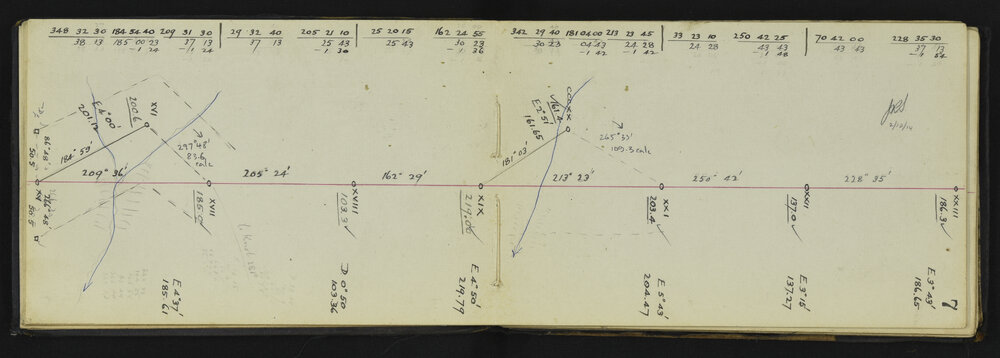 348 32 30 184 54 40 209 31 30
38 13 185 00 23 37 13
-1 24 -1 24
29 32 40
37 13
205 21 10
25 43
-1 30
25 20 15
25 43
162 24 55
30 23
-1 36
342 29 40 181 04 00 213 23 45
30 23 04 43 24 28
-1 42 -1 42
33 23 10
24 28
250 42 25
43 43
-1 48
70 42 00
43 43
228 35 30
37 13
-1 54
2/12/14
E 4° 00'
201.12
200.6
XVI
86° 48'
50.5
184° 59'
297° 48'
83.6
calc
209° 36'
205° 24'
162° 29'
XV
266° 48'
50.5
XVII
185.0
XVIII
103.3
XIX
219.00
E 4° 37'
185.61
D 0° 50'
103.36
E 4° 50'
219.79
XX
161.4
E 2° 51'
161.65
181° 03'
265° 33'
109.3 calc
213° 23'
250° 42'
228° 35'
XXI
203.4
XXII
137.0
XXIII
186.3
E 5° 43'
204.47
E 3° 15'
137.27
E 3° 43'
186.65
7